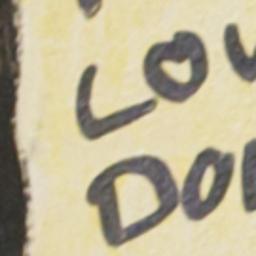 LOV
DO